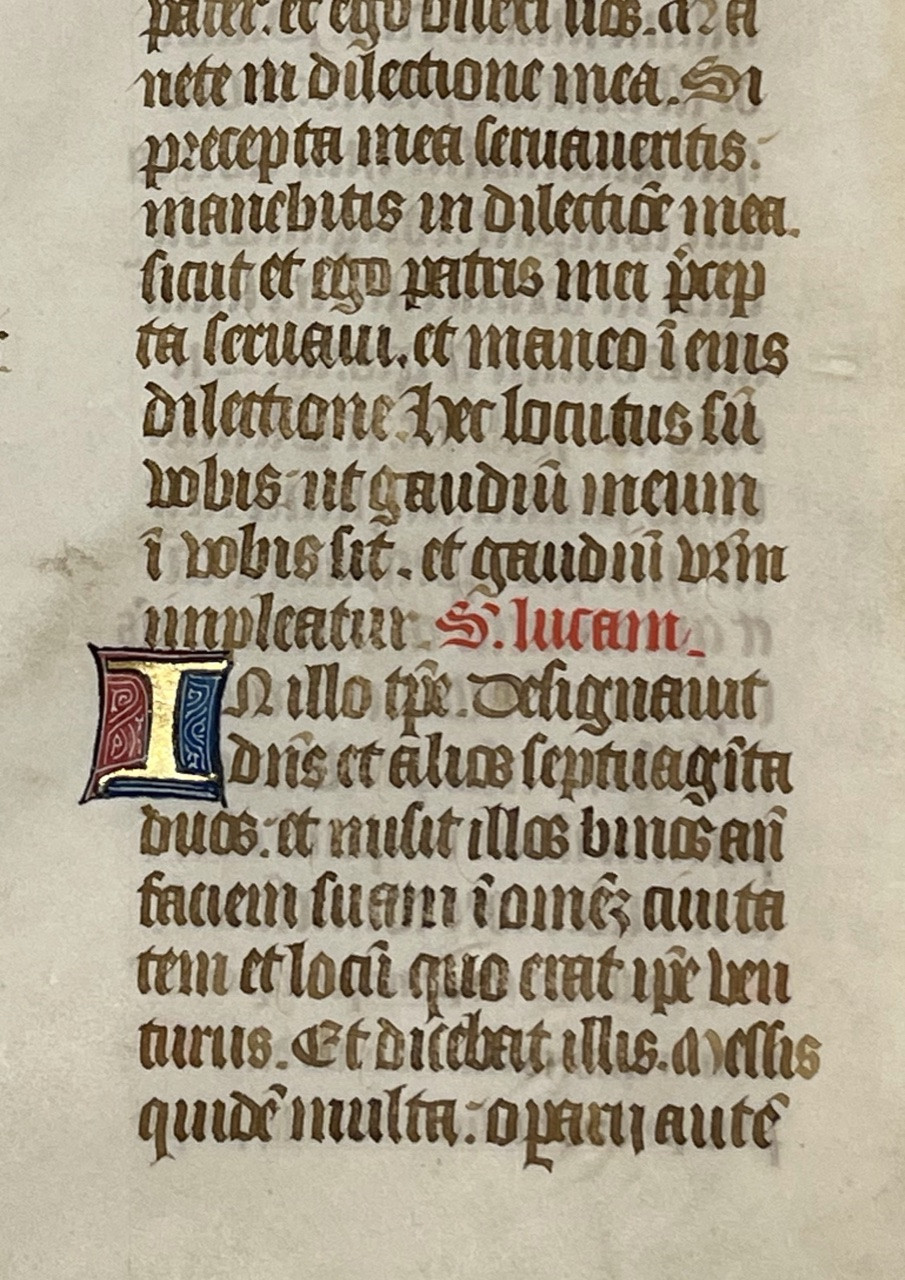 pater. et ego dilexi uos. Ma
nete in dilectione mea. Si
precepta mea seruaueritis.
manebitis in dilectiõe mea.
sicut et ego patris mei p̃cep
ta seruaui. et maneo ĩ eius
dilectione. Hec locutus sũ
vobis ut gaudiũ meum
ĩ vobis sit. et gaudiũ vr̃m
impleatur. S̃. lucam.
IN illo tp̃e. Designauit
dñs et alios septuagĩta
duos. et misit illos binos añ
faciem suam ĩ omnẽz ciuita
tem et locũ quo erat ip̃e ven
turus. Et dicebat illis. Messis
quidẽ multa. operarij autẽ